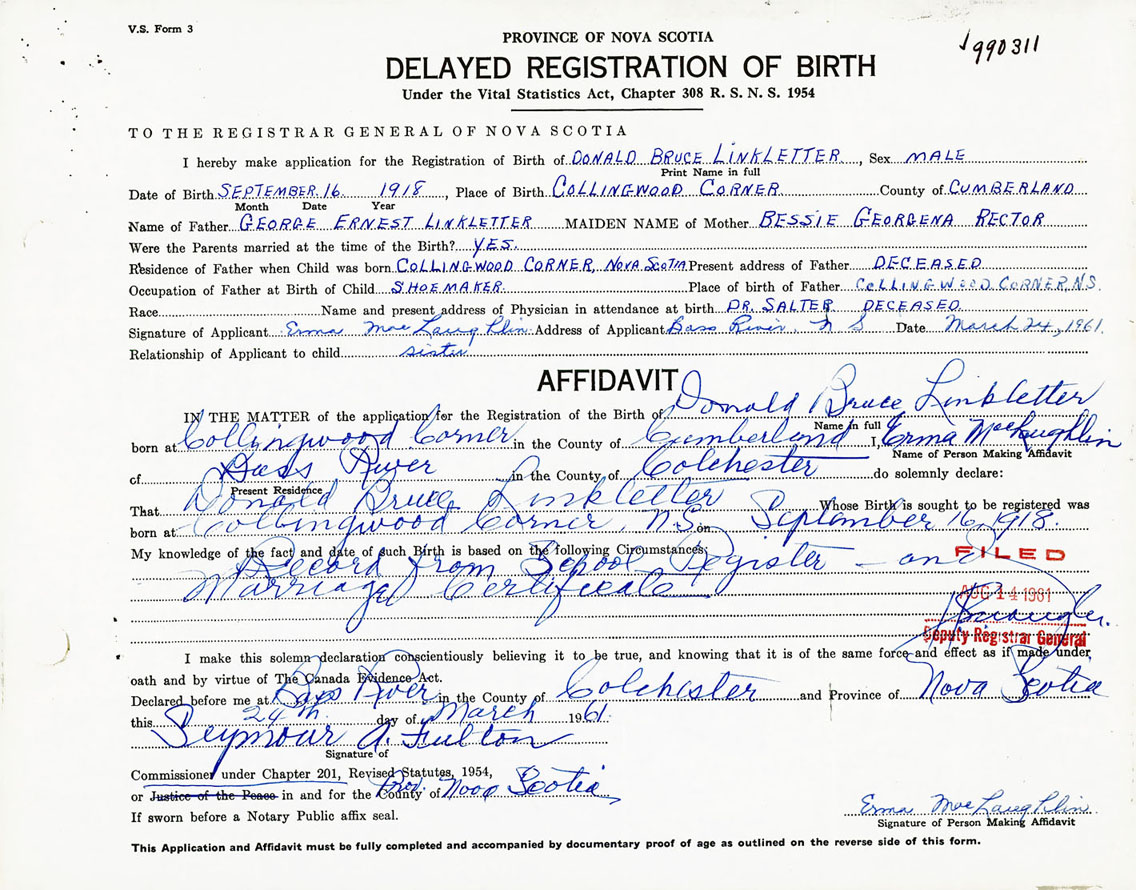 V.S. Form 3
990311
PROVINCE OF NOVA SCOTIA
DELAYED REGISTRATION OF BIRTH
Under the Vital Statistics Act, Chapter 308 R. S. N. S. 1954
TO THE REGISTRAR GENERAL OF NOVA SCOTIA
I hereby make application for the Registration of Birth of DONALD BRUCE LINKLETTER, Sex MALE
Print Name in full
Date of Birth SEPTEMBER 16 1918, Place of Birth COLLINGWOOD CORNER County of CUMBERLAND
Month Date Year
Name of Father GEORGE ERNEST LINKLETTER MAIDEN NAME of Mother BESSIE GEORGENA RECTOR
Were the Parents married at the time of the Birth? YES.
Residence of Father when Child was born COLLINGWOOD CORNER, NOVA SCOTIA Present address of Father DECEASED
Occupation of Father at Birth of Child SHOEMAKER Place of birth of Father COLLINGWOOD CORNER, N.S.
Race Name and present address of Physician in attendance at birth DR. SALTER DECEASED
Signature of Applicant Erma MacLaughlin Address of Applicant Bass River, N S Date March 24, 1961
Relationship of Applicant to child sister
AFFIDAVIT
IN THE MATTER of the application for the Registration of the Birth of Donald Bruce Linkletter
Name in full
born at Collingwood Corner in the County of Cumberland I, Erma MacLaughlin
Name of Person Making Affidavit
of Bass River in the County of Colchester do solemnly declare:
Present Residence
That Donald Bruce Linkletter Whose Birth is sought to be registered was
born at Collingwood Corner, N.S. on September 16, 1918.
My knowledge of the fact and date of such Birth is based on the following Circumstances:
Record from School Register - and
Marriage Certificate
FILED
AUG 14 1961
Deputy Registrar General
I make this solemn declaration conscientiously believing it to be true, and knowing that it is of the same force and effect as if made under
oath and by virtue of The Canada Evidence Act.
Declared before me at Bass River in the County of Colchester and Province of Nova Scotia
this 24th day of March 1961.
Seymour A. Fulton
Signature of
Commissioner under Chapter 201, Revised Statutes, 1954,
or Justice of the Peace in and for the County of Prov. Nova Scotia
If sworn before a Notary Public affix seal.
Erma MacLaughlin
Signature of Person Making Affidavit
This Application and Affidavit must be fully completed and accompanied by documentary proof of age as outlined on the reverse side of this form.